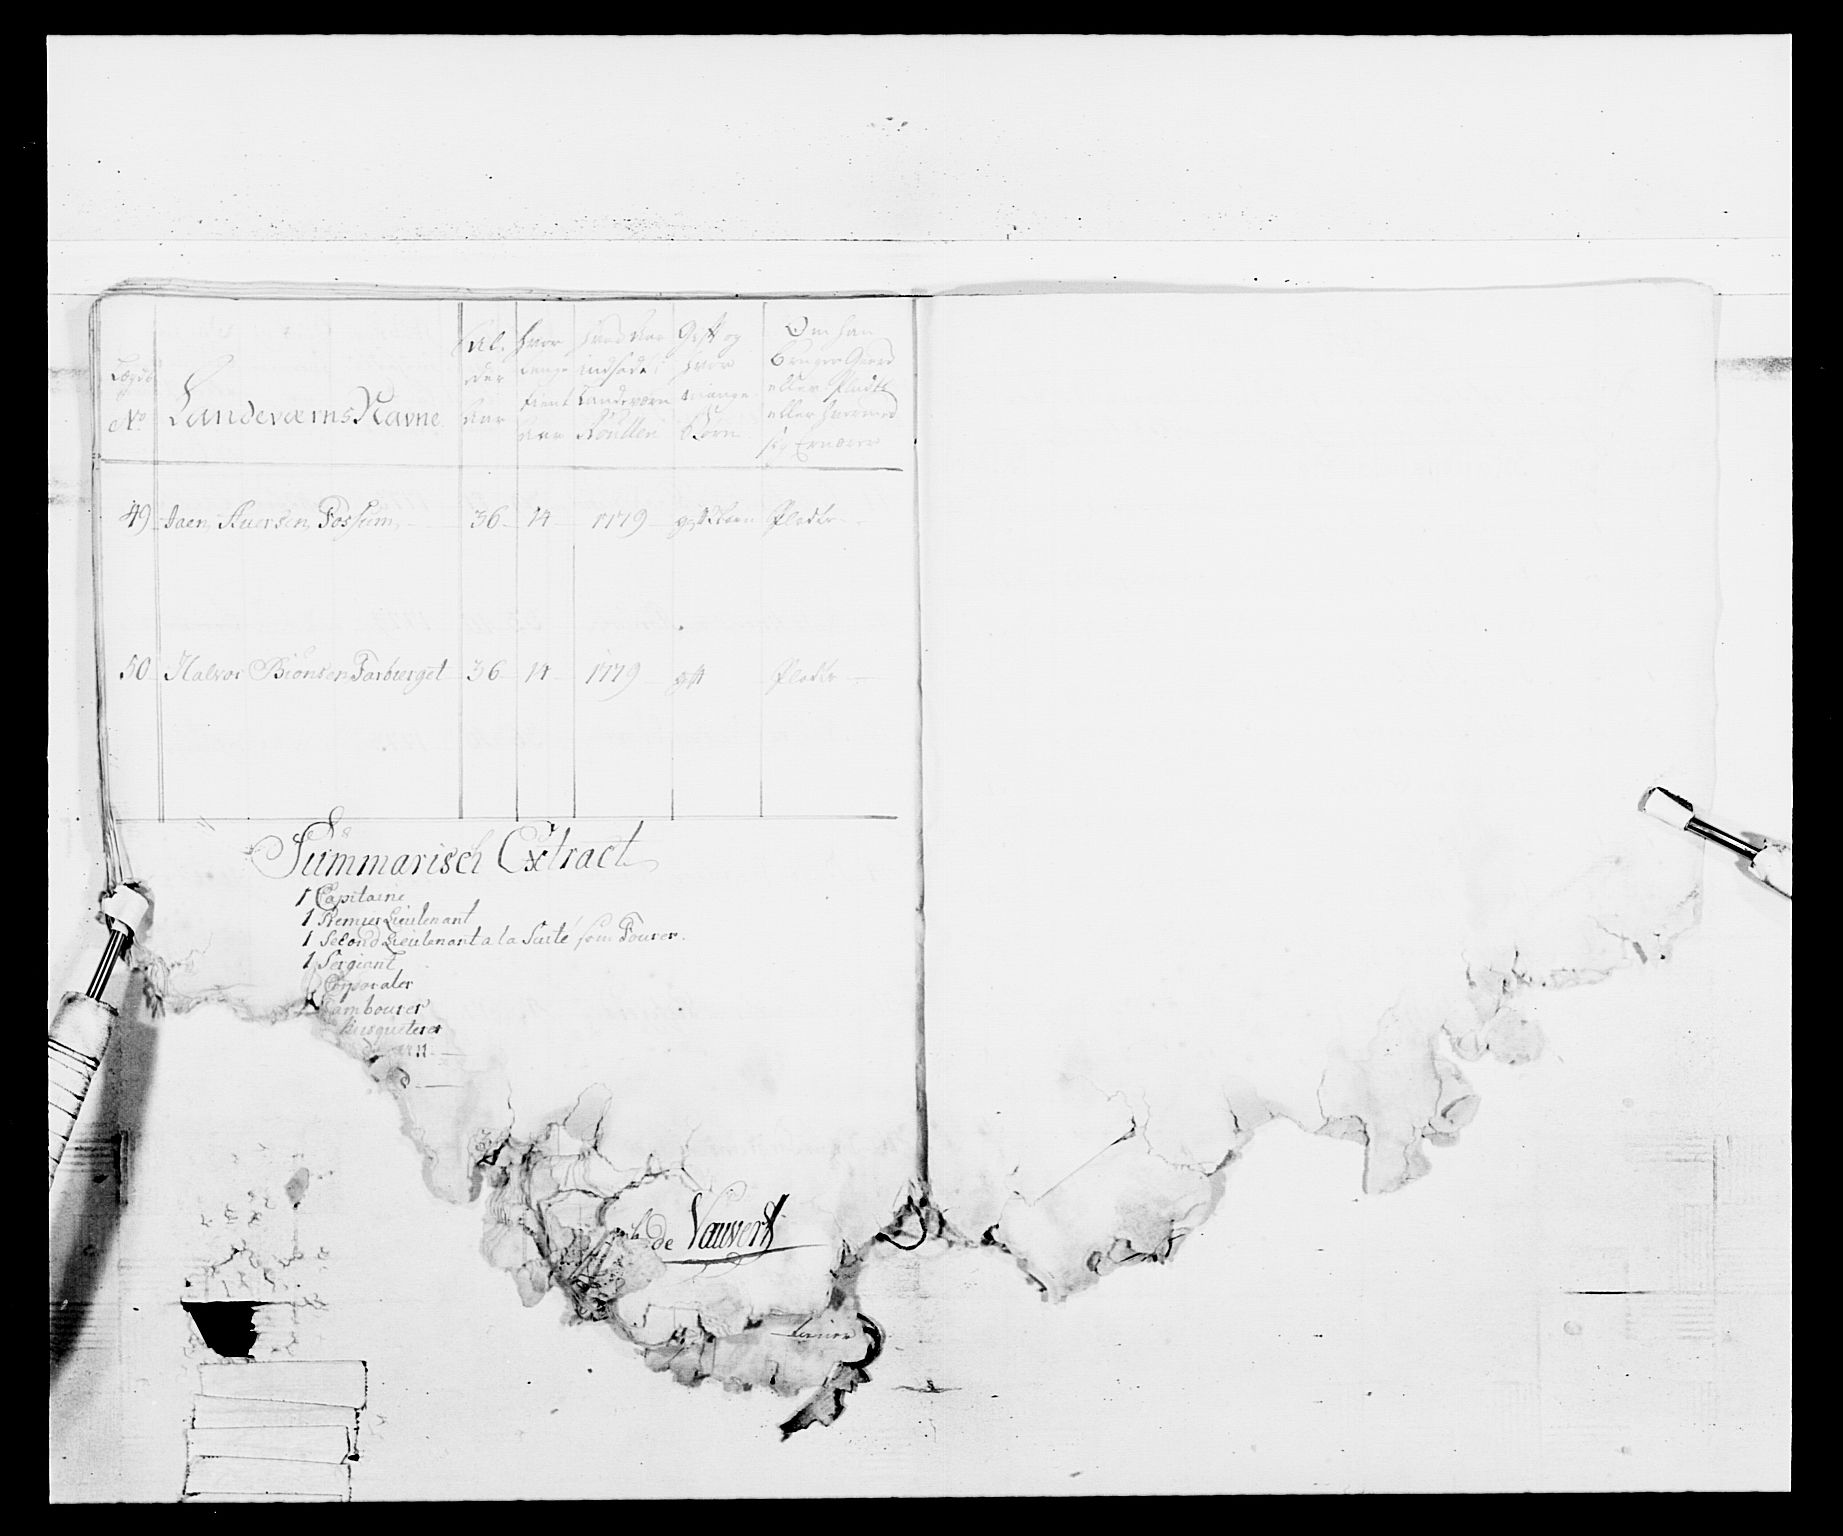 Lægds
No
Landeværns Navne
Al,
der
Aar
hvor
længe
tient
Aar
hvad Aar
indsadt i
Landeværn
Roullen
Gift og
hvor
mange
Børn
Om han
bruger Gaard
eller Pladtz
eller hvormed
sig Ernærer
49 Joen Siversen Fossum 36 14 1779 Pladtz
50 Halvor Biönsen Farberget 36 14 1779 gift Pladtz
Summarisch Extract
1 Capitaine
1 Premier Lieutenant
1 Second Lieutenant a la Suité som Fourer.
1 Sergiant
Corporaler
Tambourer
Musqueterer
de Vauvert